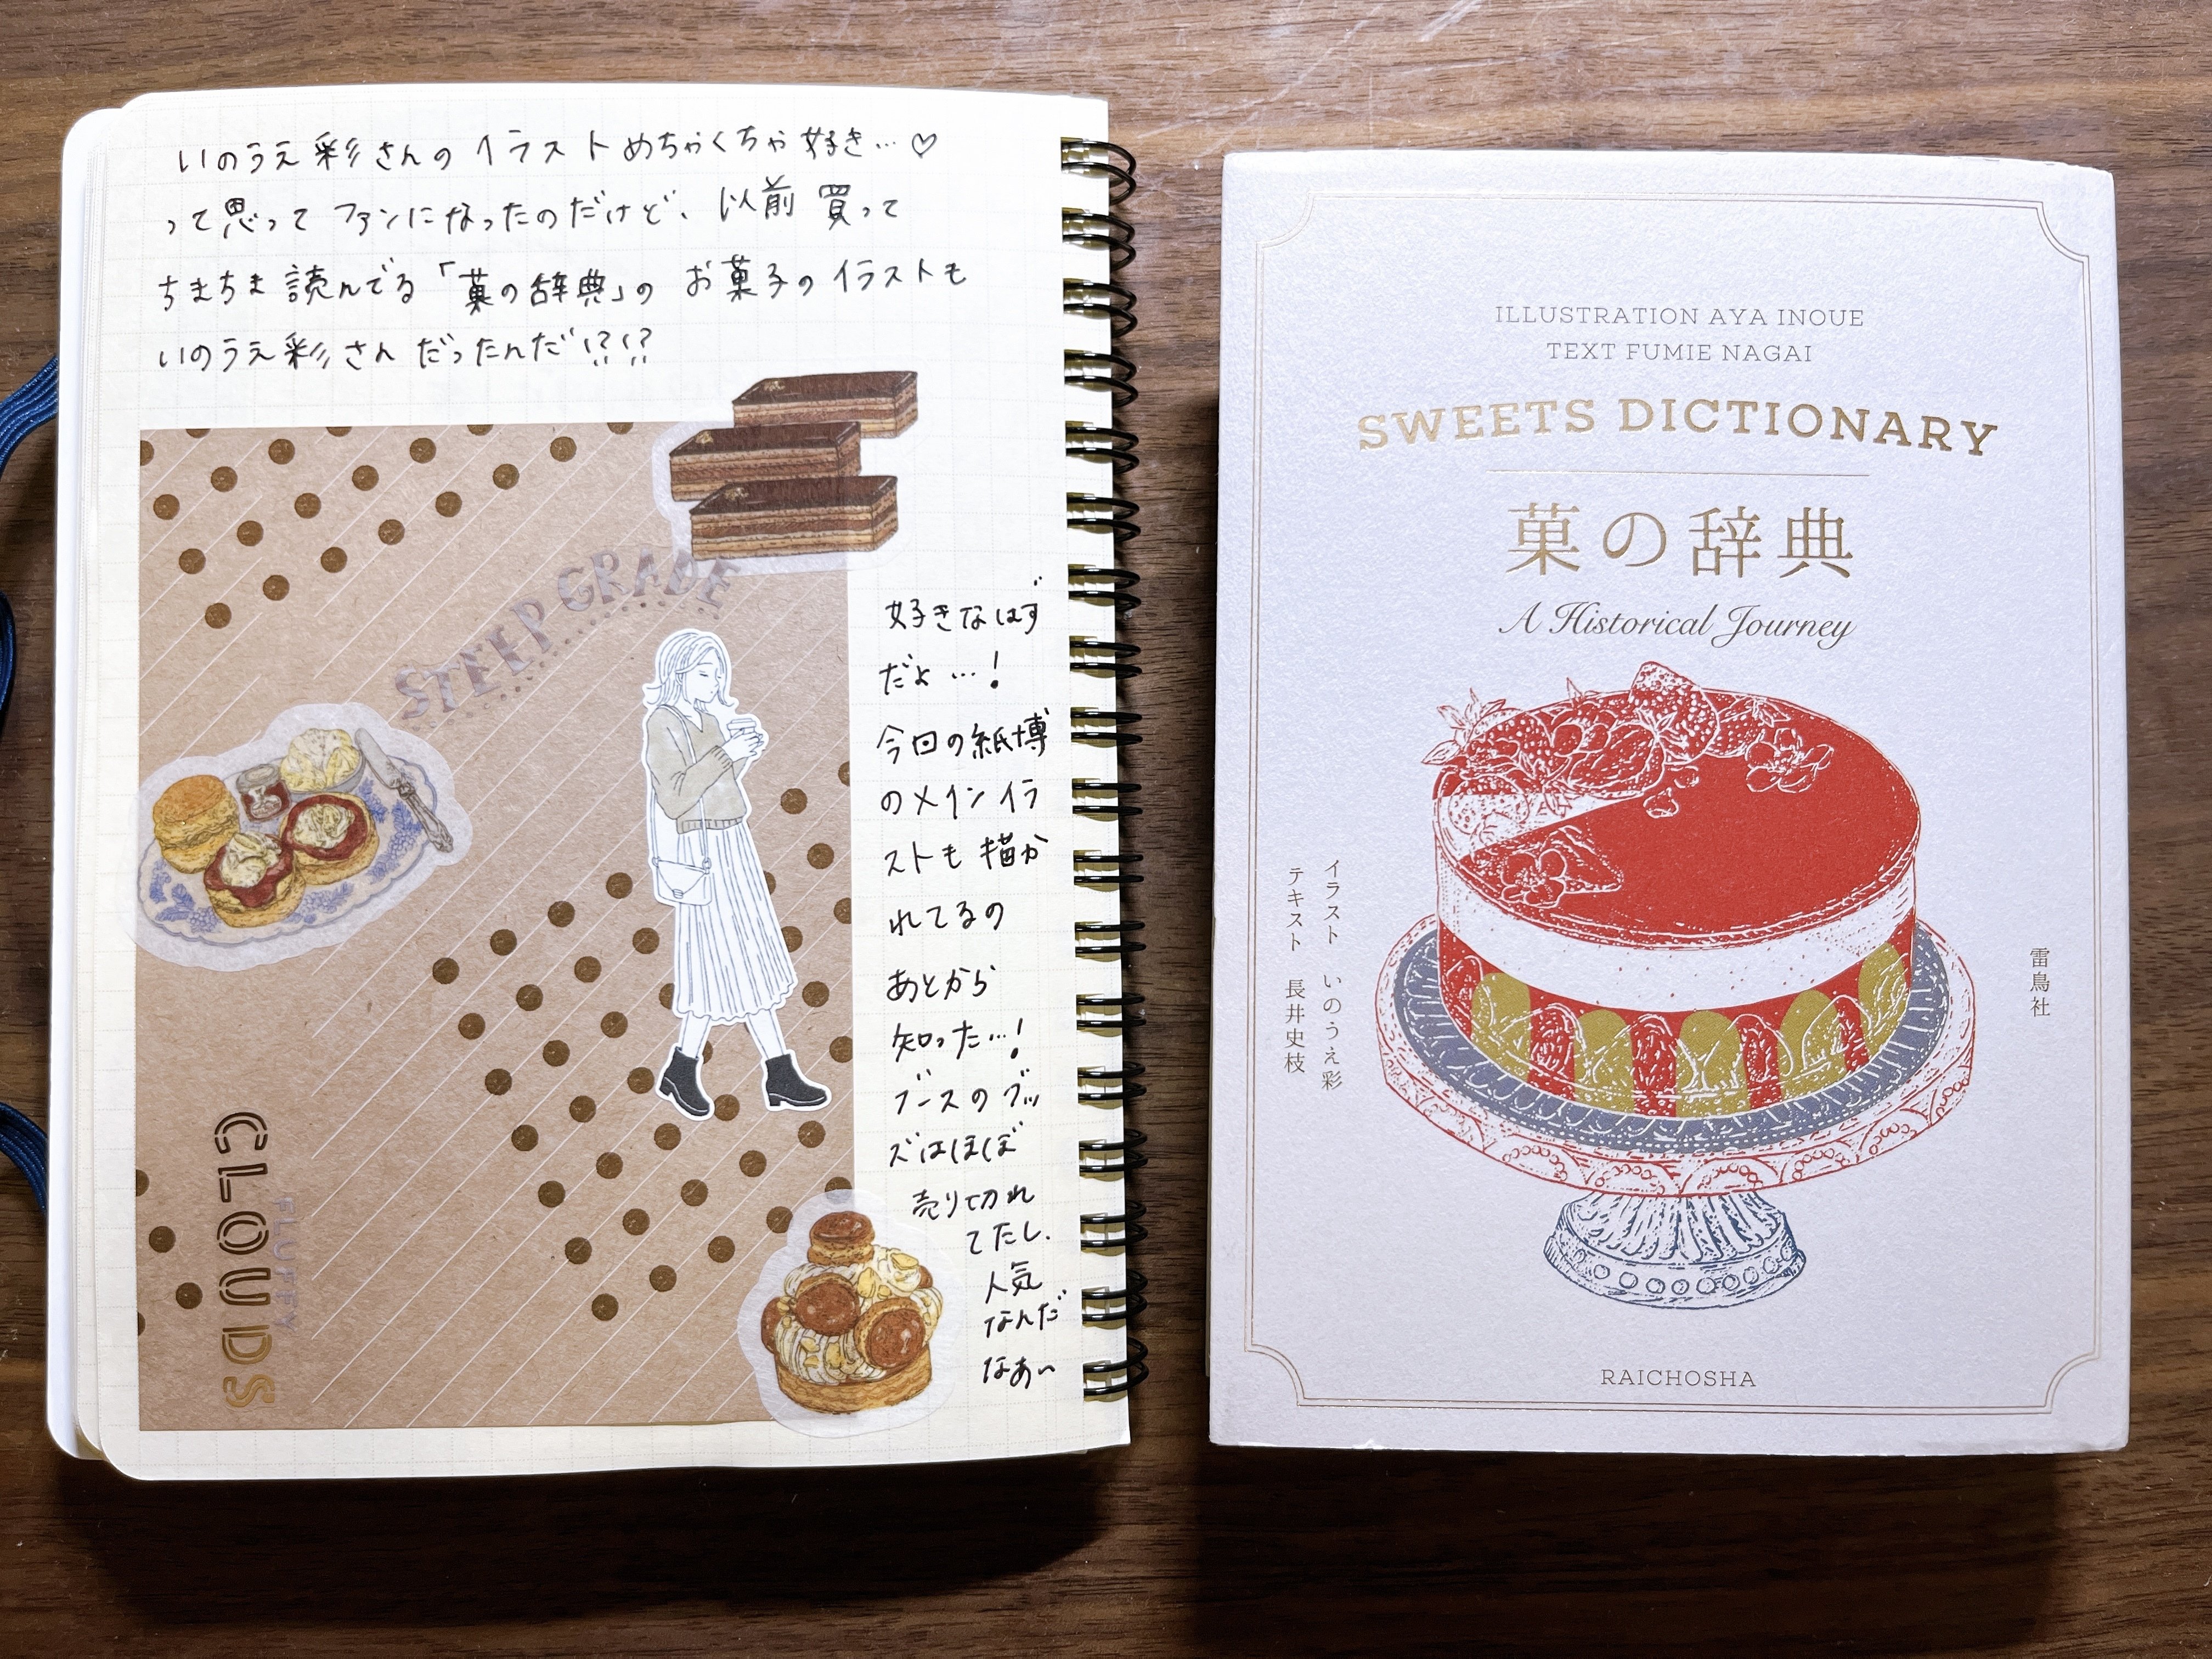 いのうえ彩さんのイラストめちゃくちゃ好き…♡
って思ってファンになったのだけど、以前買って
ちまちま読んでる「菓の辞典」のお菓子のイラストも
いのうえ彩さんだったんだ!?!?
STEEP GRADE
好きなはず
だよ…!
今回の紙博
のメインイラ
ストも描か
れてるの
あとから
知った…!
ブースのグッ
ズはほぼ
売り切れ
てたし、
人気
なんだ
なあ〜
FLUFFY
CLOUDS
ILLUSTRATION AYA INOUE
TEXT FUMIE NAGAI
SWEETS DICTIONARY
菓の辞典
A Historical Journey
イラスト いのうえ彩
テキスト 長井史枝
雷鳥社
RAICHOSHA